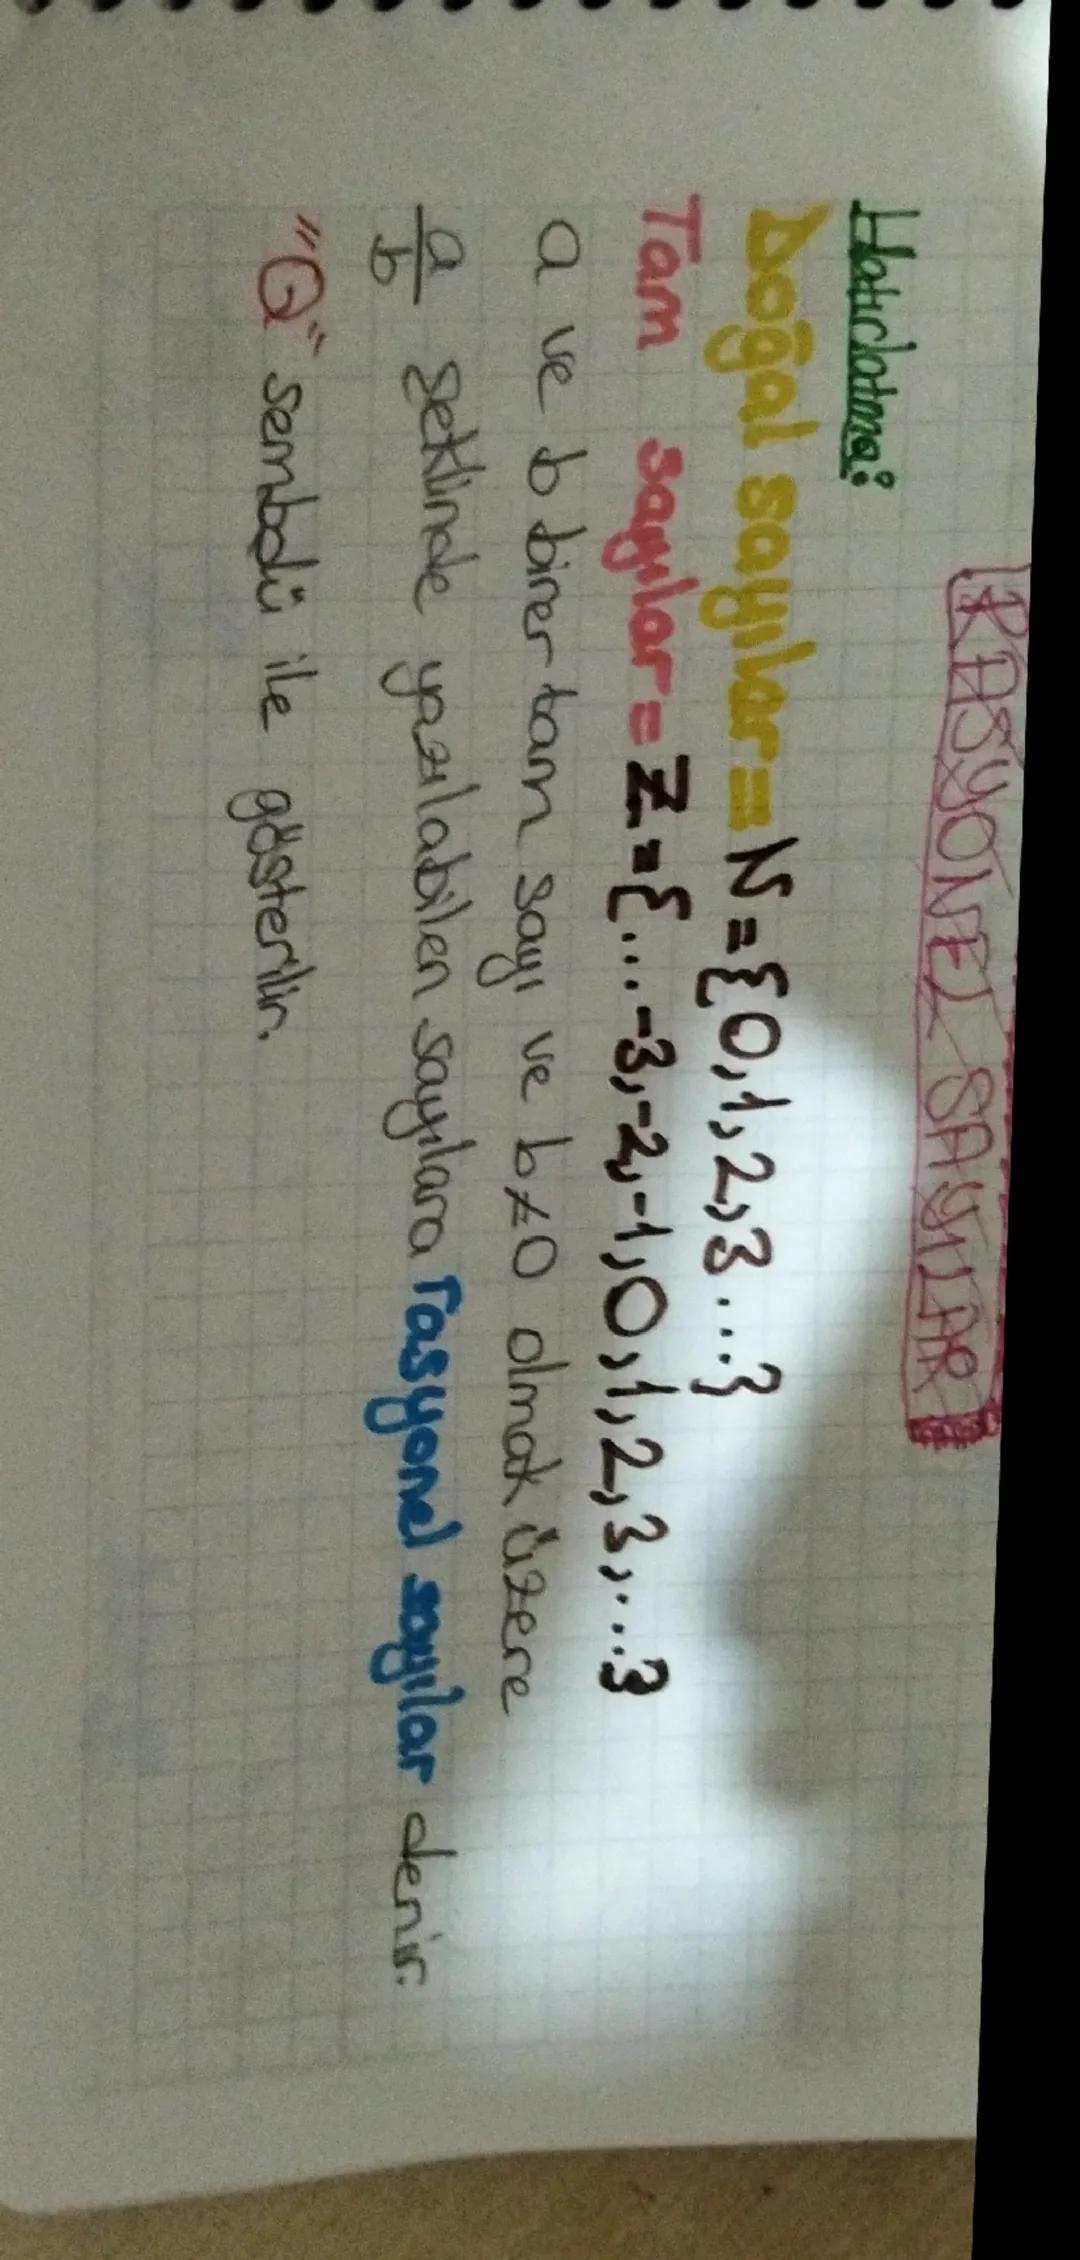 RASYONEL SAYILAR
Hatırlatma:
Doğal sayılar = N = {0,1,2,3...}
Tam sayılar = Z = {...-3,-2,-1,0,1,2,3,...}
a ve b birer tam sayı ve b≠0 olmak üzere
a/b şeklinde yazılabilen sayılara rasyonel sayılar denir.
"Q" sembolü ile gösterilir.